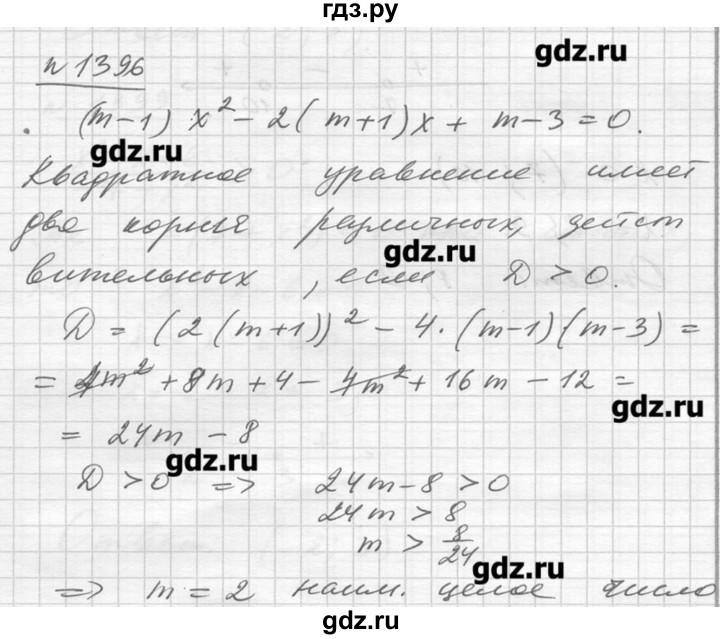 гдз.ру
gdz.ru
n 1396
(m-1) x² - 2(m+1)x + m-3 = 0.
gdz.ru
Квадратное уравнение имеет
два корня различных, дейст
gdz.ru
вительных, если D > 0.
D = (2(m+1))² - 4·(m-1)(m-3) =
= 4m² + 8m + 4 - 4m² + 16m - 12 =
gdz.ru
= 24m - 8
gdz.ru
D > 0 => 24m - 8 > 0
24m > 8
m > 8/24
gdz.ru
=> m = 2 наим. целое число
gdz.ru